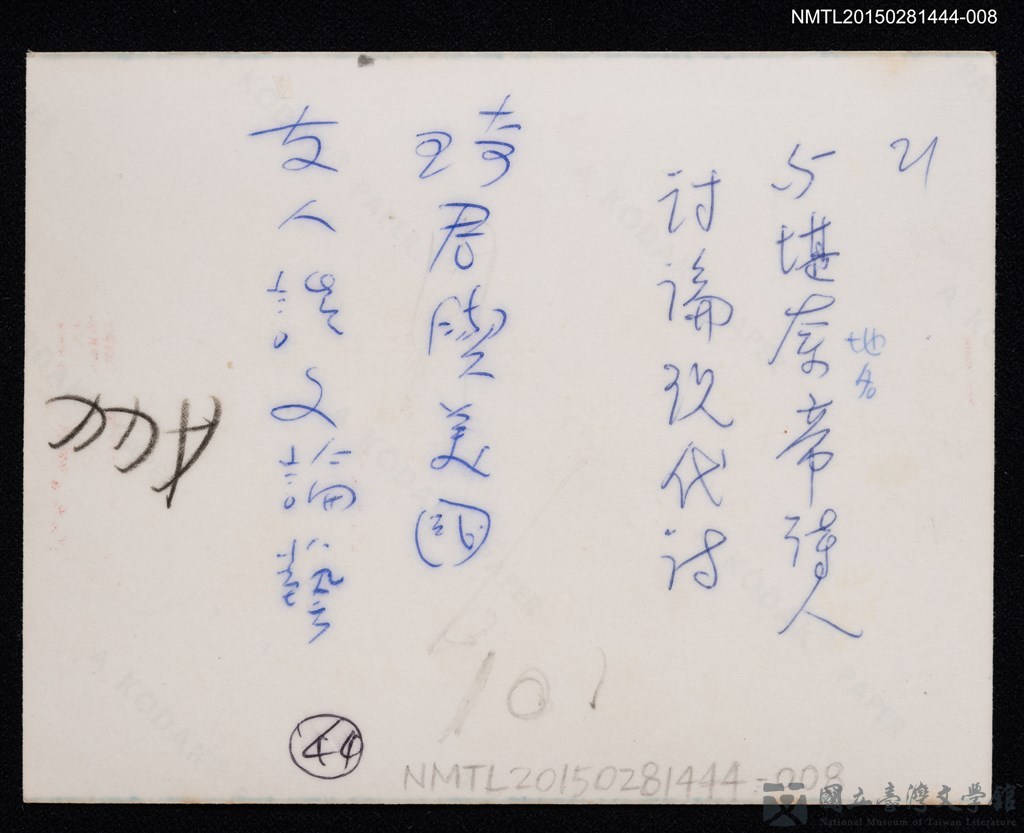 NMTL20150281444-008
21
与堪奈帝詩人
地名
討論现代诗
琦君與美國
友人談文論藝
101
44
NMTL20150281444-008
國立臺灣文學館
National Museum of Taiwan Literature